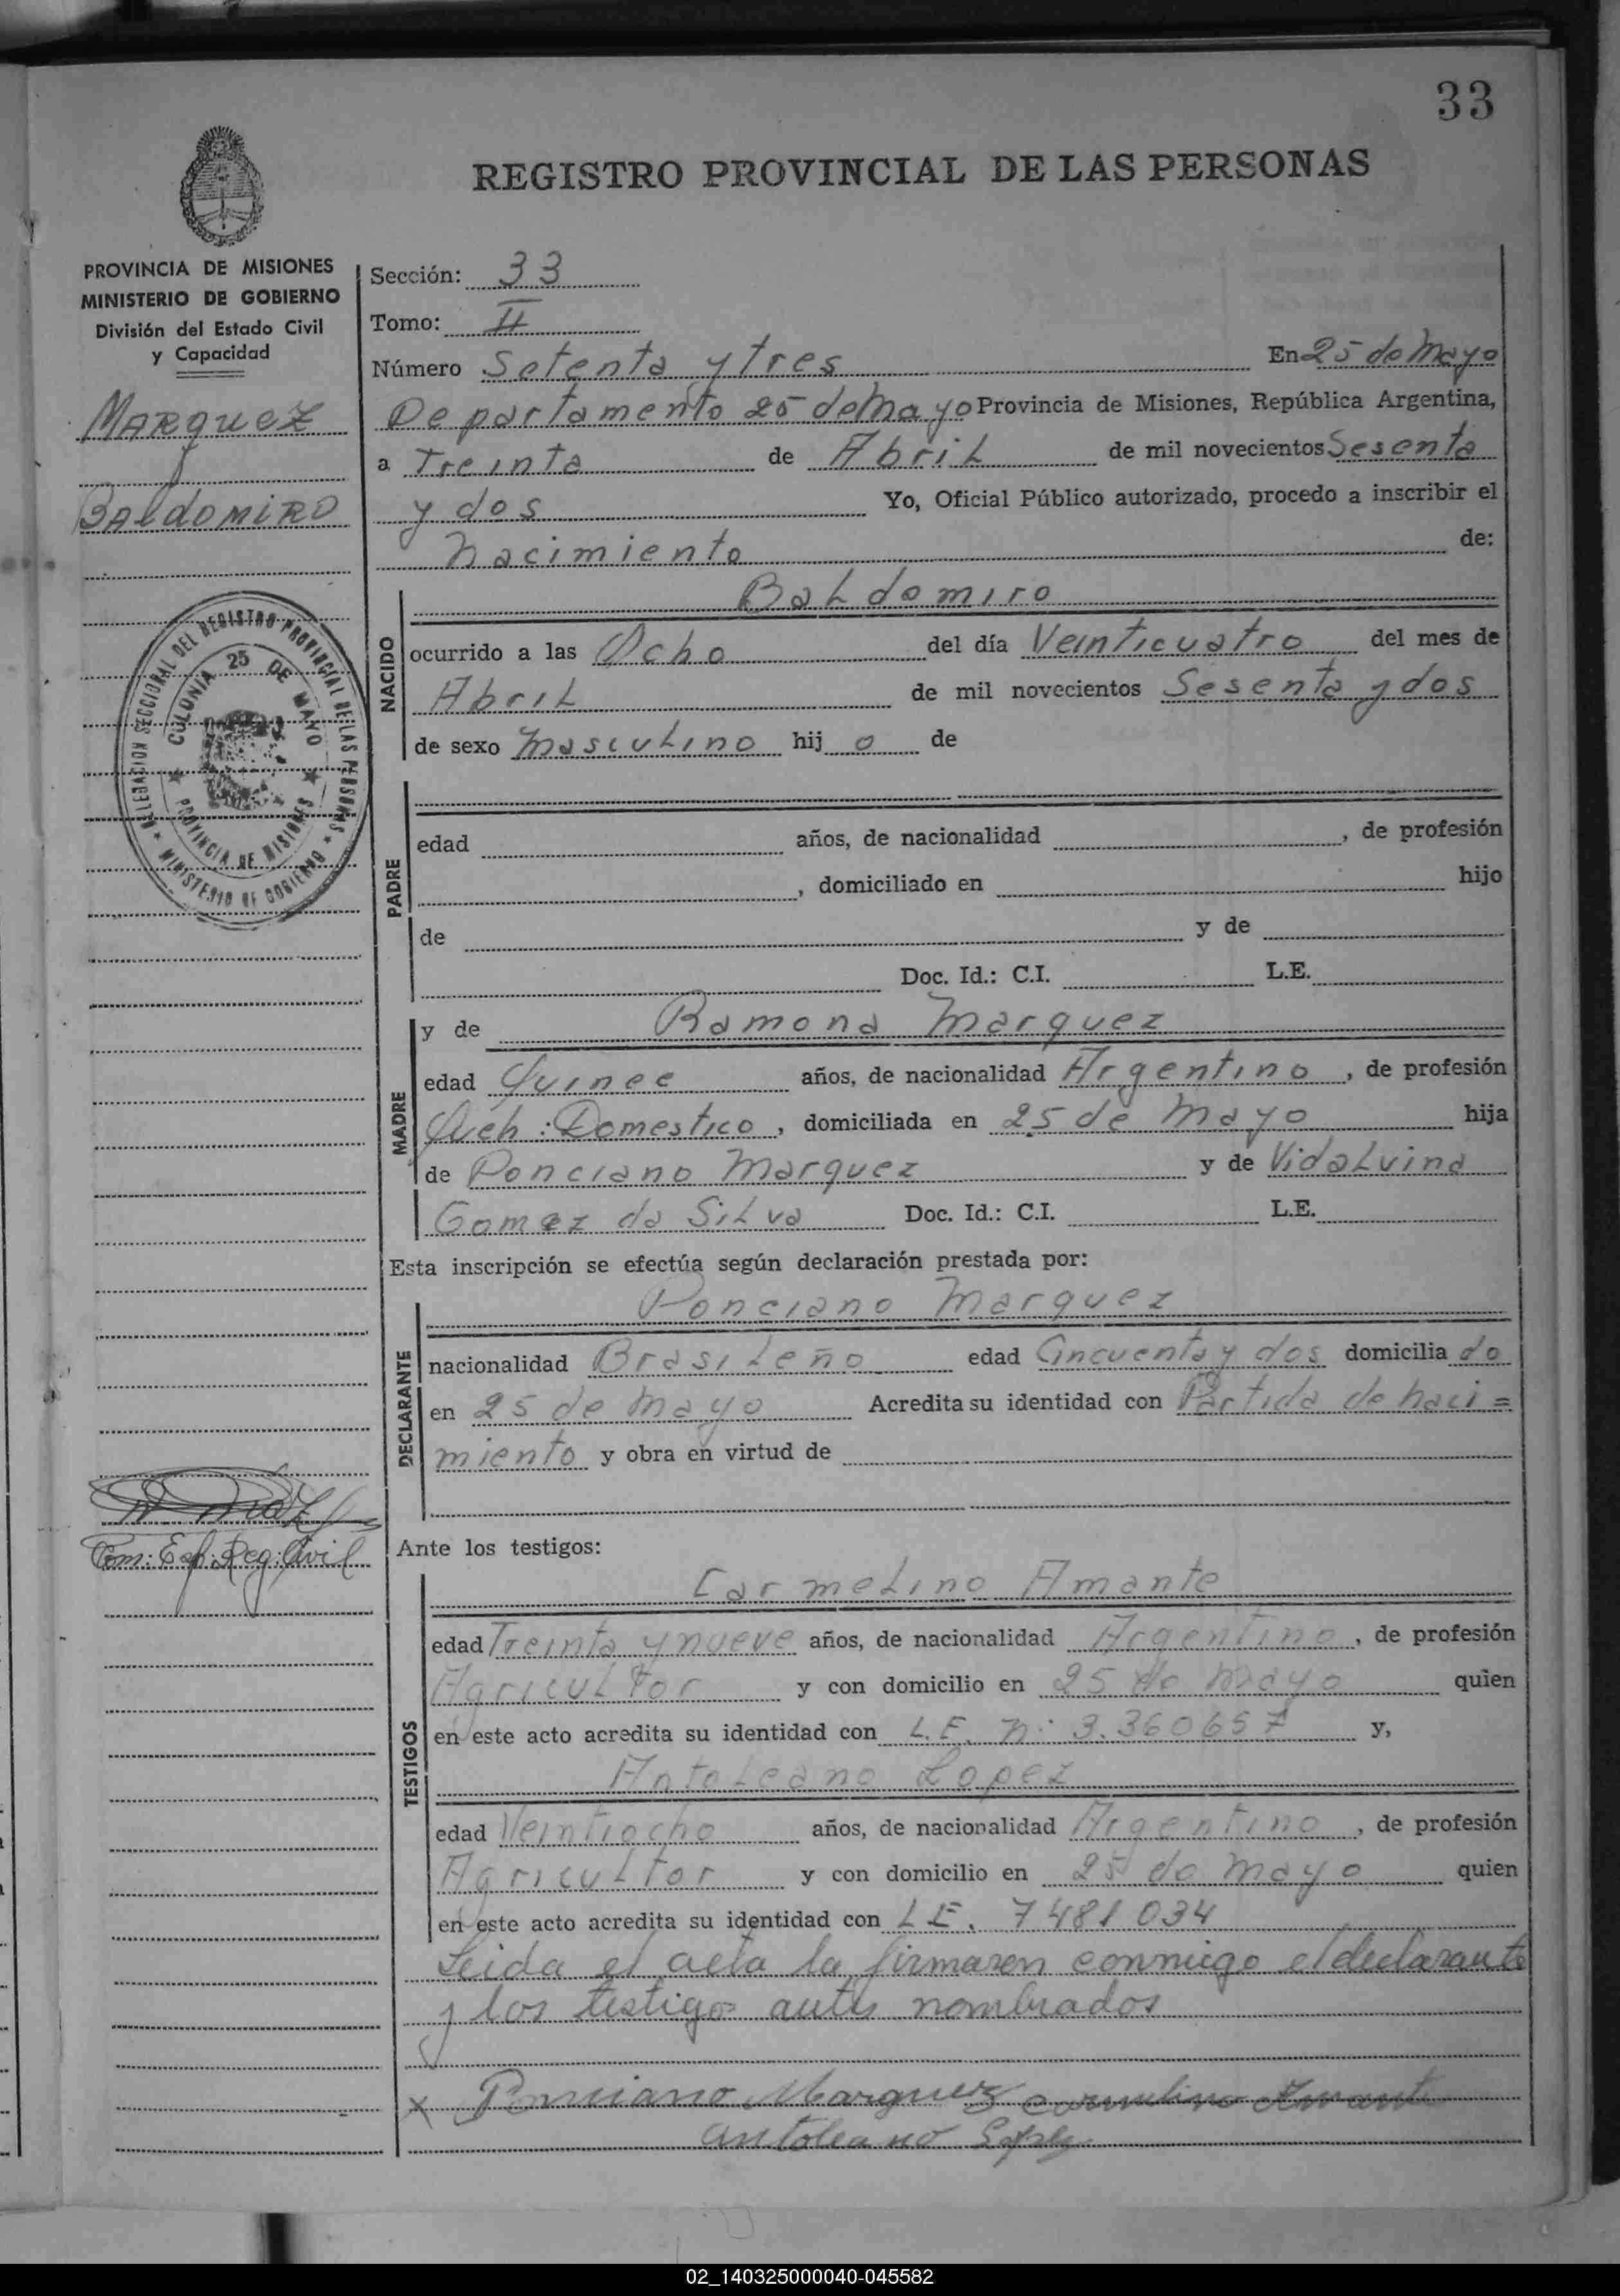 33
REGISTRO PROVINCIAL DE LAS PERSONAS
PROVINCIA DE MISIONES
MINISTERIO DE GOBIERNO
División del Estado Civil
y Capacidad
MARQUEZ
BALDOMIRO
DELEGACION SECCIONAL DEL REGISTRO PROVINCIAL DE LAS PERSONAS
COLONIA 25 DE MAYO
PROVINCIA DE MISIONES
MINISTERIO DE GOBIERNO
Com: Esp. Reg: Civil
Sección: 33
Tomo: II
Número Setenta y tres En 25 de Mayo
Departamento 25 de Mayo Provincia de Misiones, República Argentina,
a Treinta de Abril de mil novecientos Sesenta
y dos Yo, Oficial Público autorizado, procedo a inscribir el
Nacimiento de:
NACIDO
Baldomiro
ocurrido a las Ocho del día Veinticuatro del mes de
Abril de mil novecientos Sesenta y dos
de sexo Masculino hij o de
PADRE
edad años, de nacionalidad , de profesión
, domiciliado en hijo
de y de
Doc. Id.: C.I. L.E.
MADRE
y de Ramona Marquez
edad Quince años, de nacionalidad Argentino, de profesión
Queh: Domestico, domiciliada en 25 de Mayo hija
de Ponciano Marquez y de Vidalvina
Gomez da Silva Doc. Id.: C.I. L.E.
Esta inscripción se efectúa según declaración prestada por:
DECLARANTE
Ponciano Marquez
nacionalidad Brasileño edad Cincuenta y dos domicilia do
en 25 de Mayo Acredita su identidad con Partida de naci=
miento y obra en virtud de
Ante los testigos:
TESTIGOS
Carmelino Amante
edad Treinta y nueve años, de nacionalidad Argentino, de profesión
Agricultor y con domicilio en 25 de Mayo quien
en este acto acredita su identidad con L.E. n: 3.360657 y,
Antoleano Lopez
edad Veintiocho años, de nacionalidad Argentino, de profesión
Agricultor y con domicilio en 25 de Mayo quien
en este acto acredita su identidad con L.E. 7481034
Leida el acta la firmaren conmigo el declarante
y los testigos antes nombrados
x Ponciano Marquez Carmelino Amante
antoleano Lopez
02_140325000040-045582